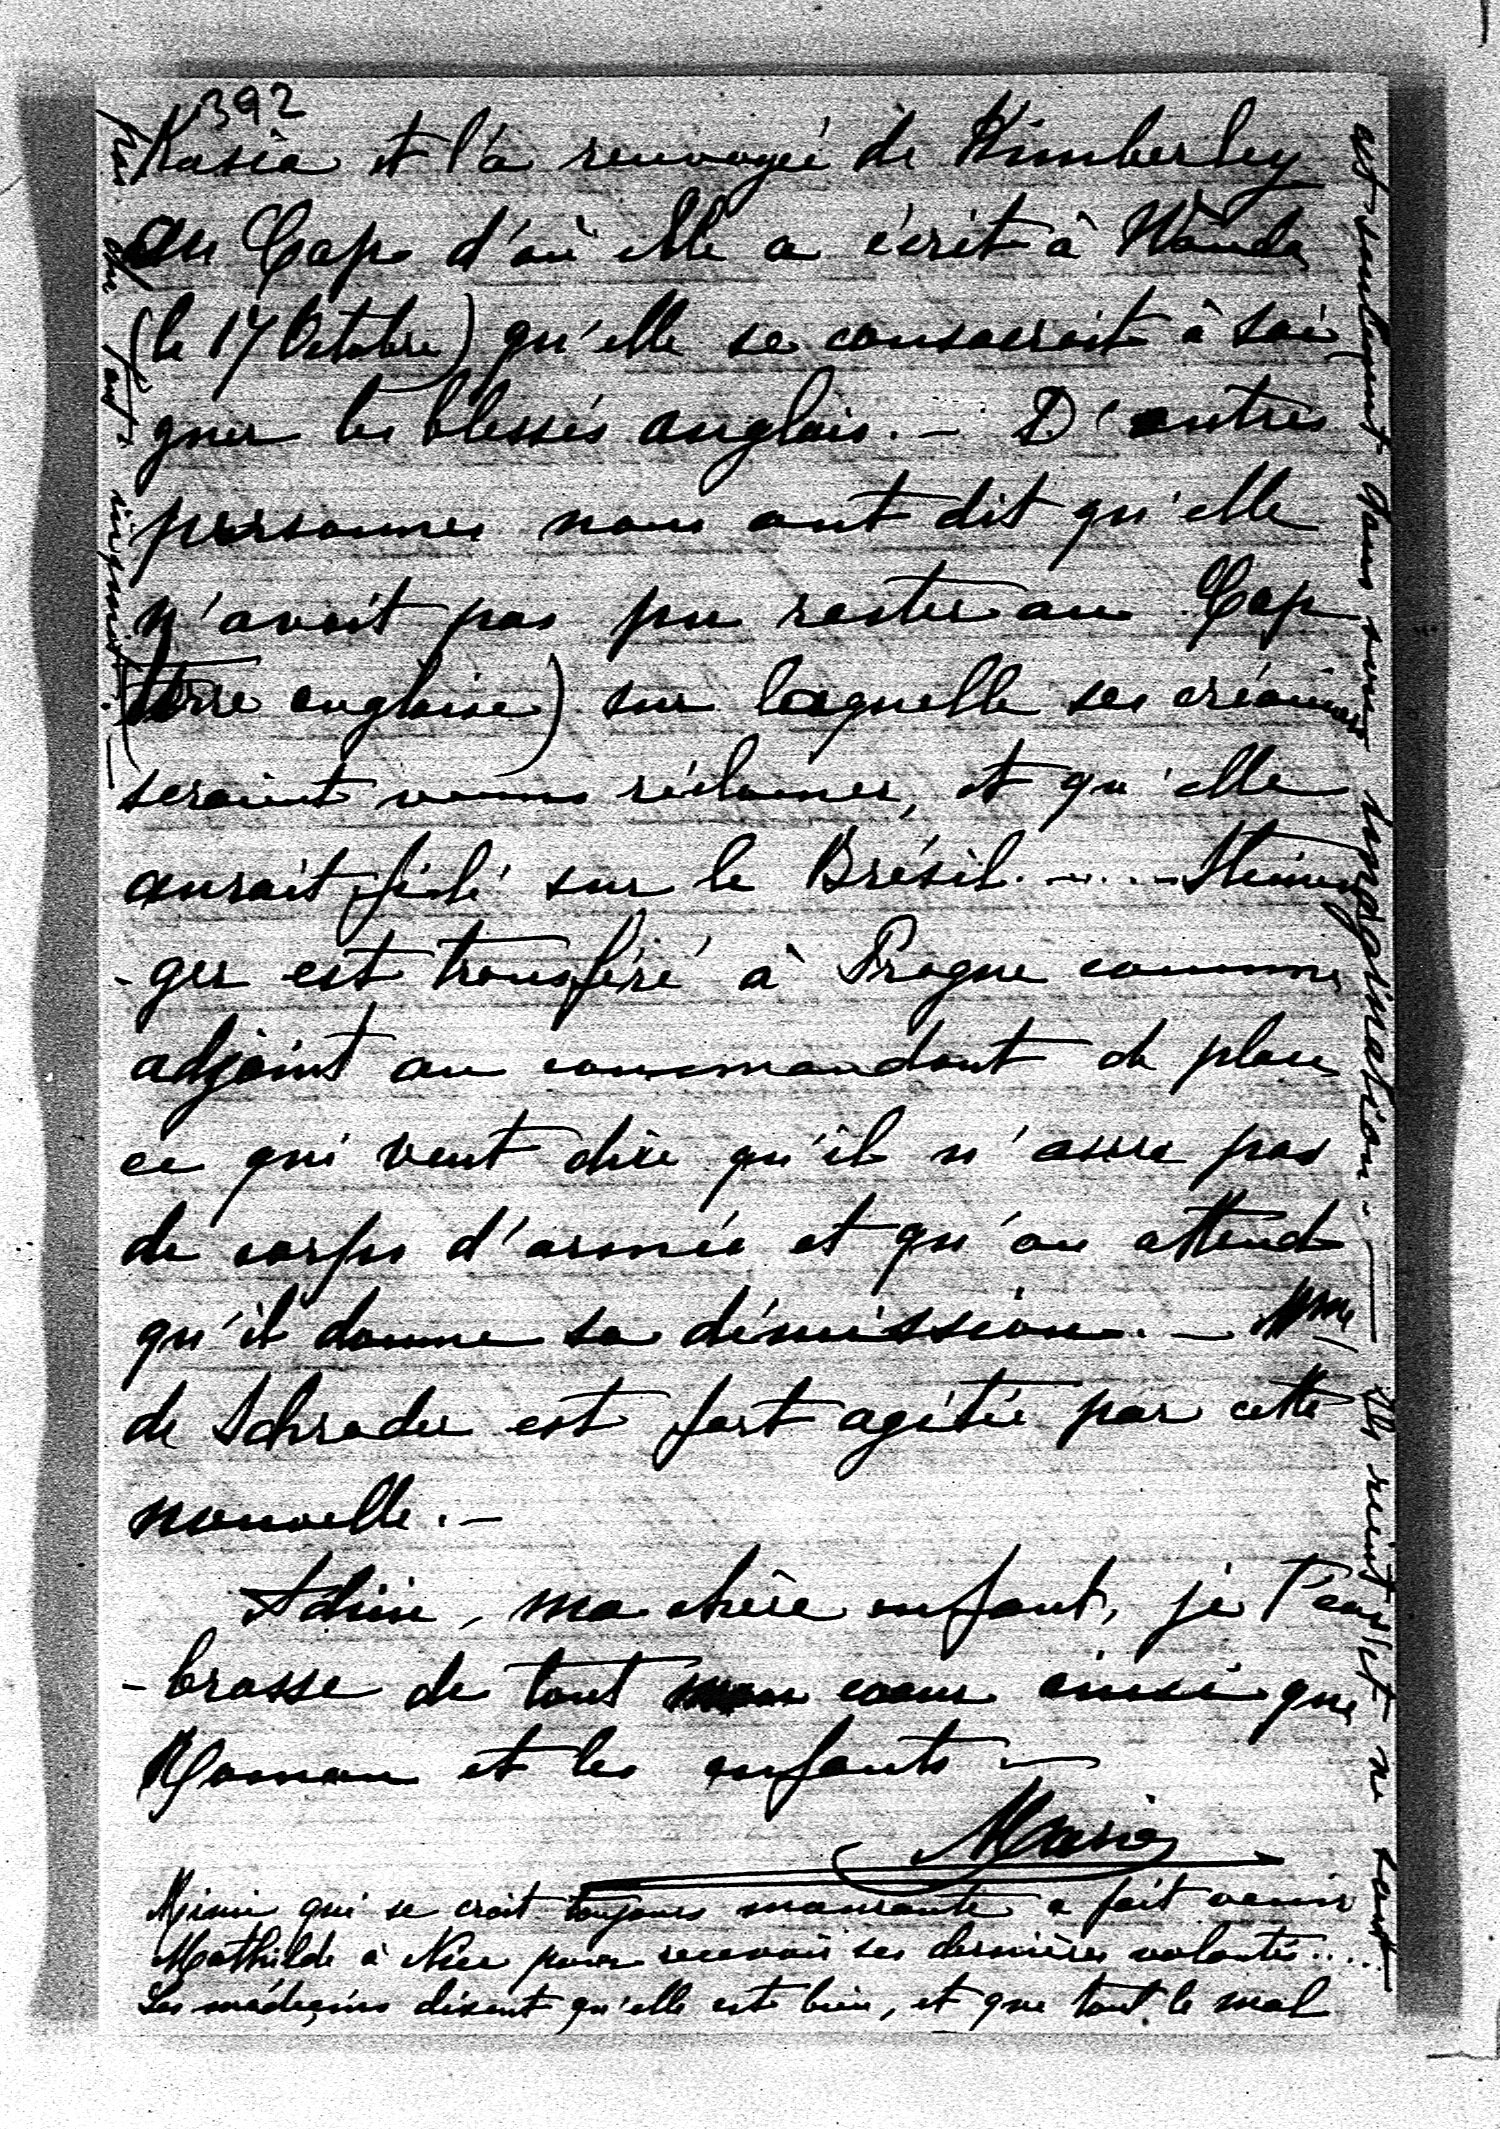 392
Kasia et l'a renvoyée de Kimberley
au Cap d'où elle a écrit à Wanda
(le 17 Octobre) qu'elle se consacrait à soi
gner les blessés anglais. — D'autres
personnes nous ont dit qu'elle
n'avait pas pu rester au Cap
(terre anglaise) sur laquelle ses créanciers
seraient venus réclamer, et qu'elle
aurait filé sur le Brésil. — . . —
- ger est transféré à Prague comme
adjoint au commandant de place
ce qui veut dire qu'il n'aura pas
de corps d'armée et qu'on attend
qu'il donne sa démission. — Mme
de Schrader est fort agitée par cette
nouvelle. —
Adieu, ma chère enfant, je t'em
- brasse de tout mon coeur ainsi que
Roman et les enfants —
Marie
Mimi qui se croit toujours mourante a fait venir
Mathilde à Nice pour recevoir ses dernières volontés....
Les médecins disent qu'elle est bien, et que tout le mal
est seulement dans son imagination. — Elle vient et ne